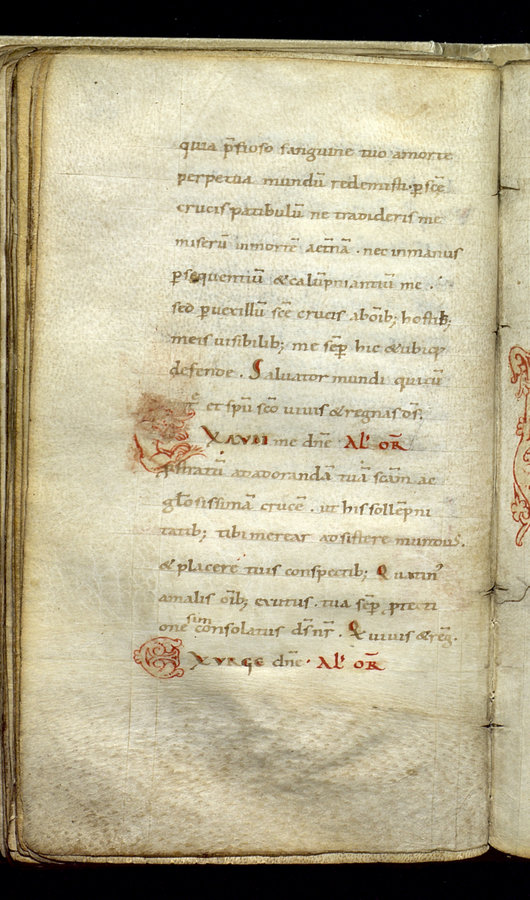 quia p̄tioso sanguine tuo amorte
perpetua mundū redemisti · p sc̄ę
crucis patibulū ne tradideris me
miserū inmortē aet̄nā · nec inmanus
p̄sequentiū & calūpniantiū me ·
sed p uexillū sc̄e crucis abōib; hostib;
meis uisibilib; me sēp hic & ubiq;
defende · Saluator mundi qui cū
et spū sc̄o uiuis & regnas d̄s;
EXAUDI me dn̄e · Al' OR̄
p̄stratū adadorandā tuā sc̄am ac
gl̄osissimā crucē · ut his sollēpni
tatib; tibi merear adsistere mundus ·
& placere tuis conspectib; Quatin'
amalis ōib; erutus · tua sēp ptecti
one sim consolatus d̄s nr̄ · Q uiuis & reḡ ·
EXURGE dn̄e · Al' OR̄